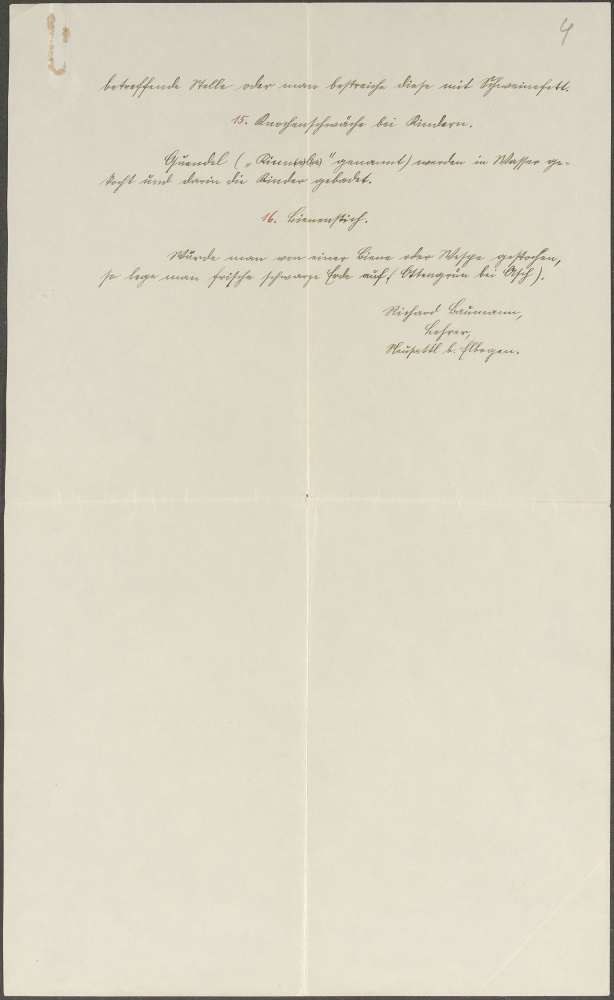 4
betreffende Stelle oder man bestreiche diese mit Schweinefett.
15. Knochenschwäche bei Kindern.
Quendel („ " genannt) werden in Wasser ge-
kocht und darin die Kinder gebadet.
16. Bienenstich.
Wurde man von einer Biene oder Wespe gestochen,
so lege man frische schwarze Erde auf (Ottengrün bei Asch).
Richard Baumann,
Lehrer,
Neusattl b. Elbogen.